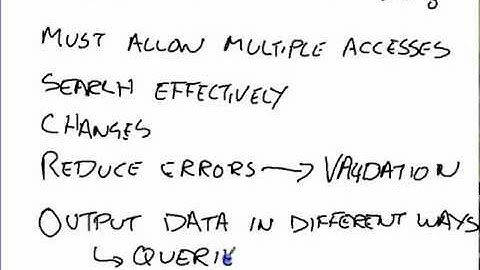 MUST ALLOW MULTIPLE ACCESSES
SEARCH EFFECTIVELY
CHANGES
REDUCE ERRORS → VALIDATION
OUTPUT DATA IN DIFFERENT WAYS
↳ QUERIE